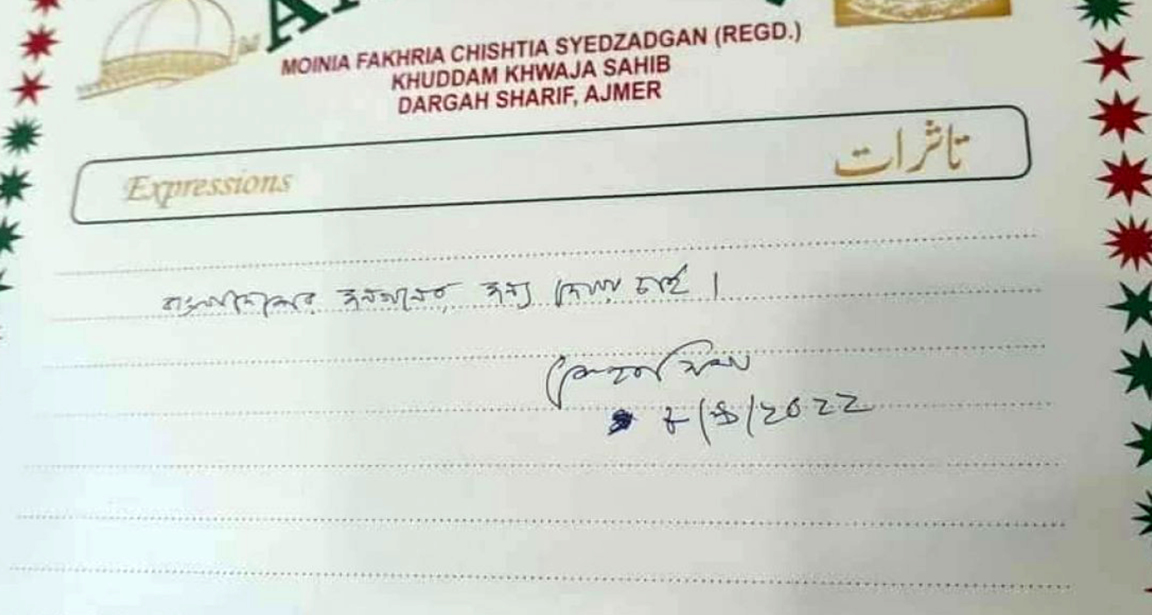 MOINIA FAKHRIA CHISHTIA SYEDZADGAN (REGD.)
KHUDDAM KHWAJA SAHIB
DARGAH SHARIF, AJMER
Expressions
تاثرات
বাংলাদেশের জনগনের জন্য দোয়া চাই।